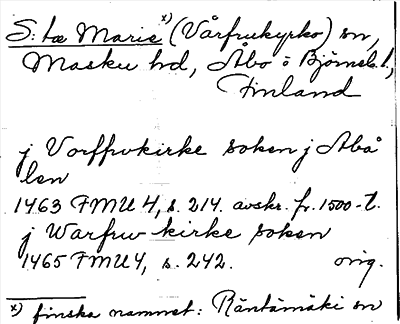 S:ta Marie x) (Vårfrukyrko) sn,
Masku hd, Åbo o Björneb. l,
Finland
j Vorffrvkirke soken j Abå
len
1463 FMU 4, s. 214. avskr. fr. 1500-t.
j Warfrw kirke soken
1465 FMU 4, s. 242. orig.
x) finska namnet: Räntämäki sn